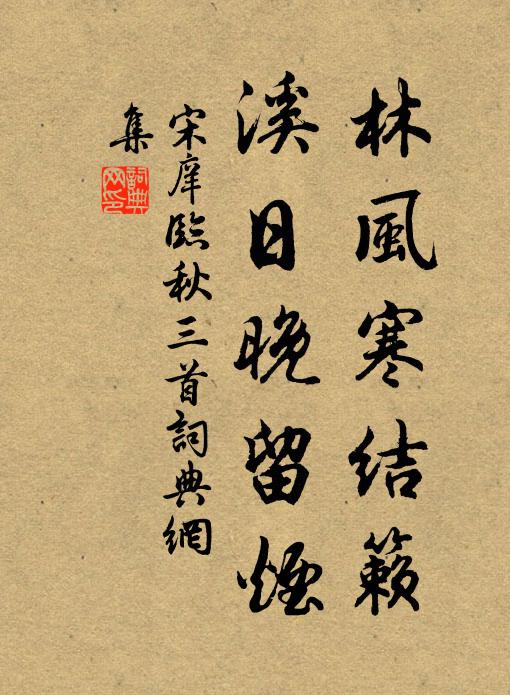 林風寒結籟
溪日晚留煙
宋庠臨秋三首詞典網
集
詞典網印